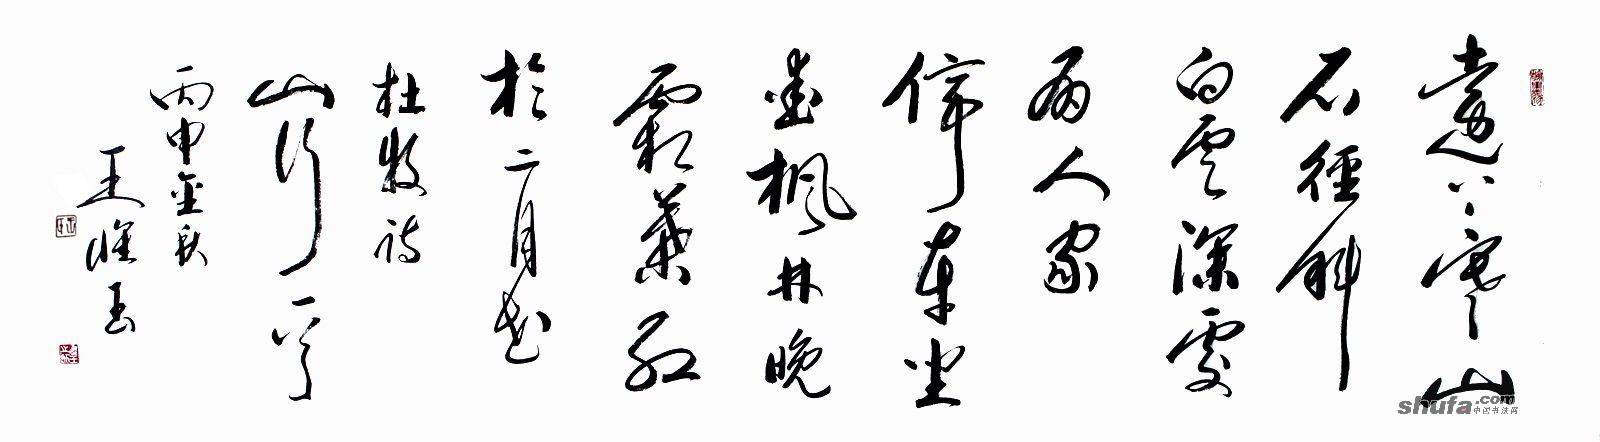 遠上寒山
石徑斜
白雲深處
有人家
停車坐
愛楓林晚
霜葉紅
於二月花
杜牧詩
山行一首
丙申金秋
王玉
shufa.com
中国书法网